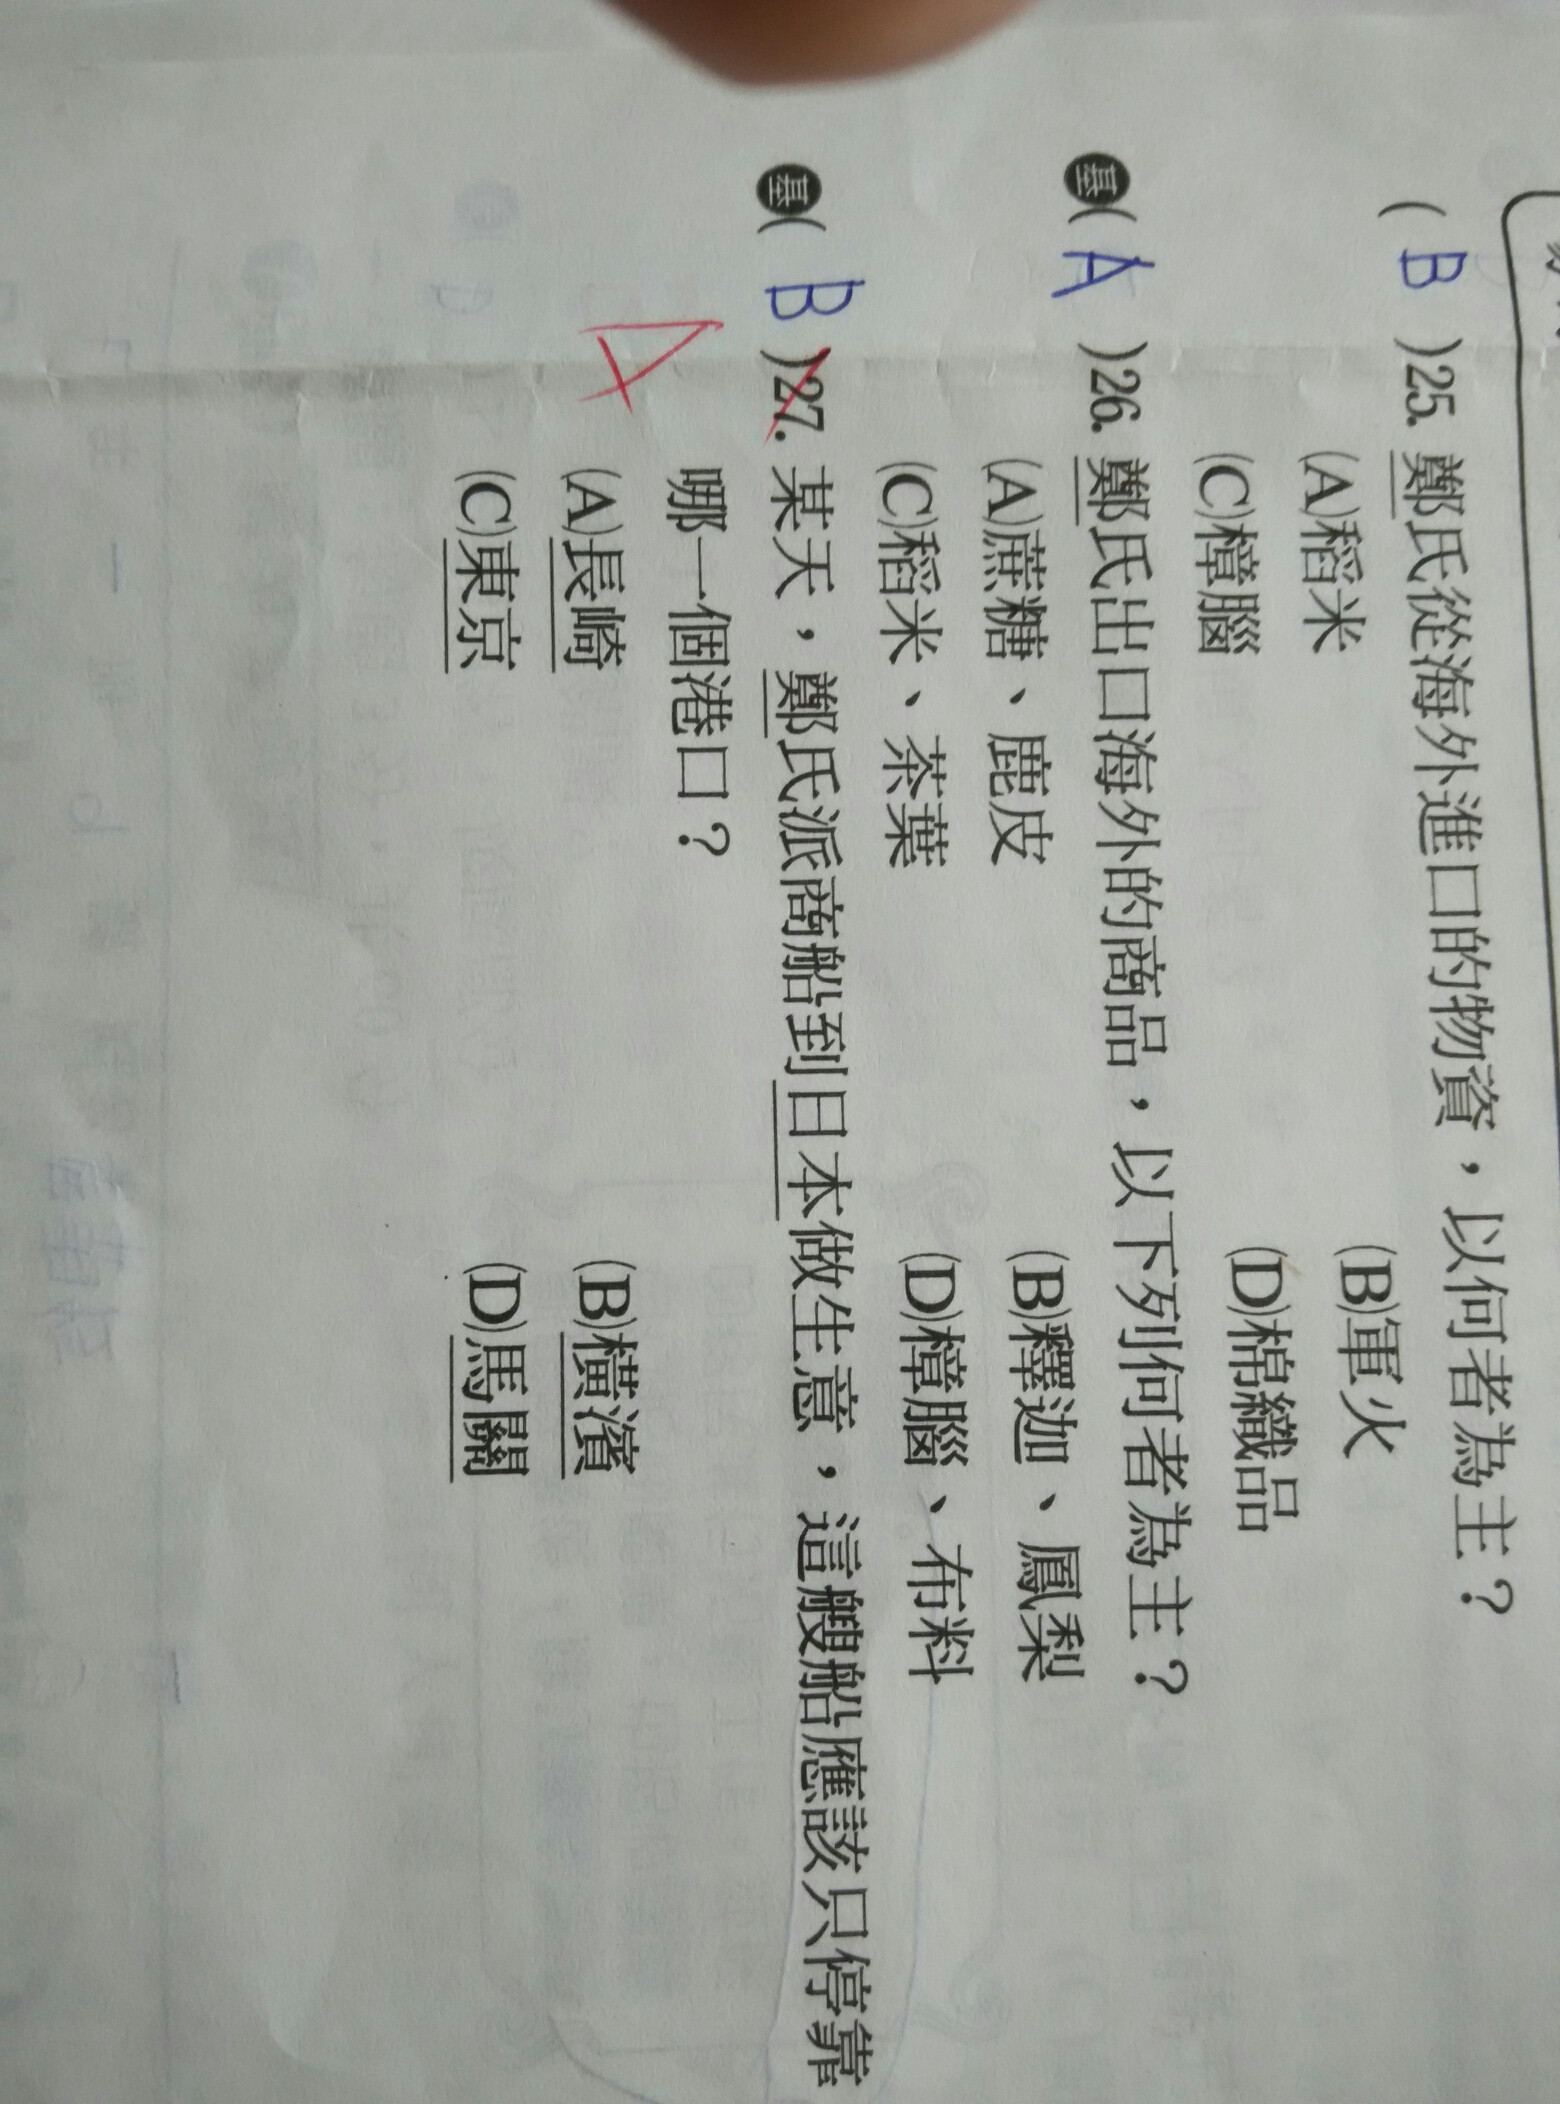 ( B )25. 鄭氏從海外進口的物資，以何者為主？
(A)稻米 (B)軍火
(C)樟腦 (D)棉織品
基( A )26. 鄭氏出口海外的商品，以下列何者為主？
(A)蔗糖、鹿皮 (B)釋迦、鳳梨
(C)稻米、茶葉 (D)樟腦、布料
基( B )27. 某天，鄭氏派商船到日本做生意，這艘船應該只停靠
A 哪一個港口？
(A)長崎 (B)橫濱
(C)東京 (D)馬關